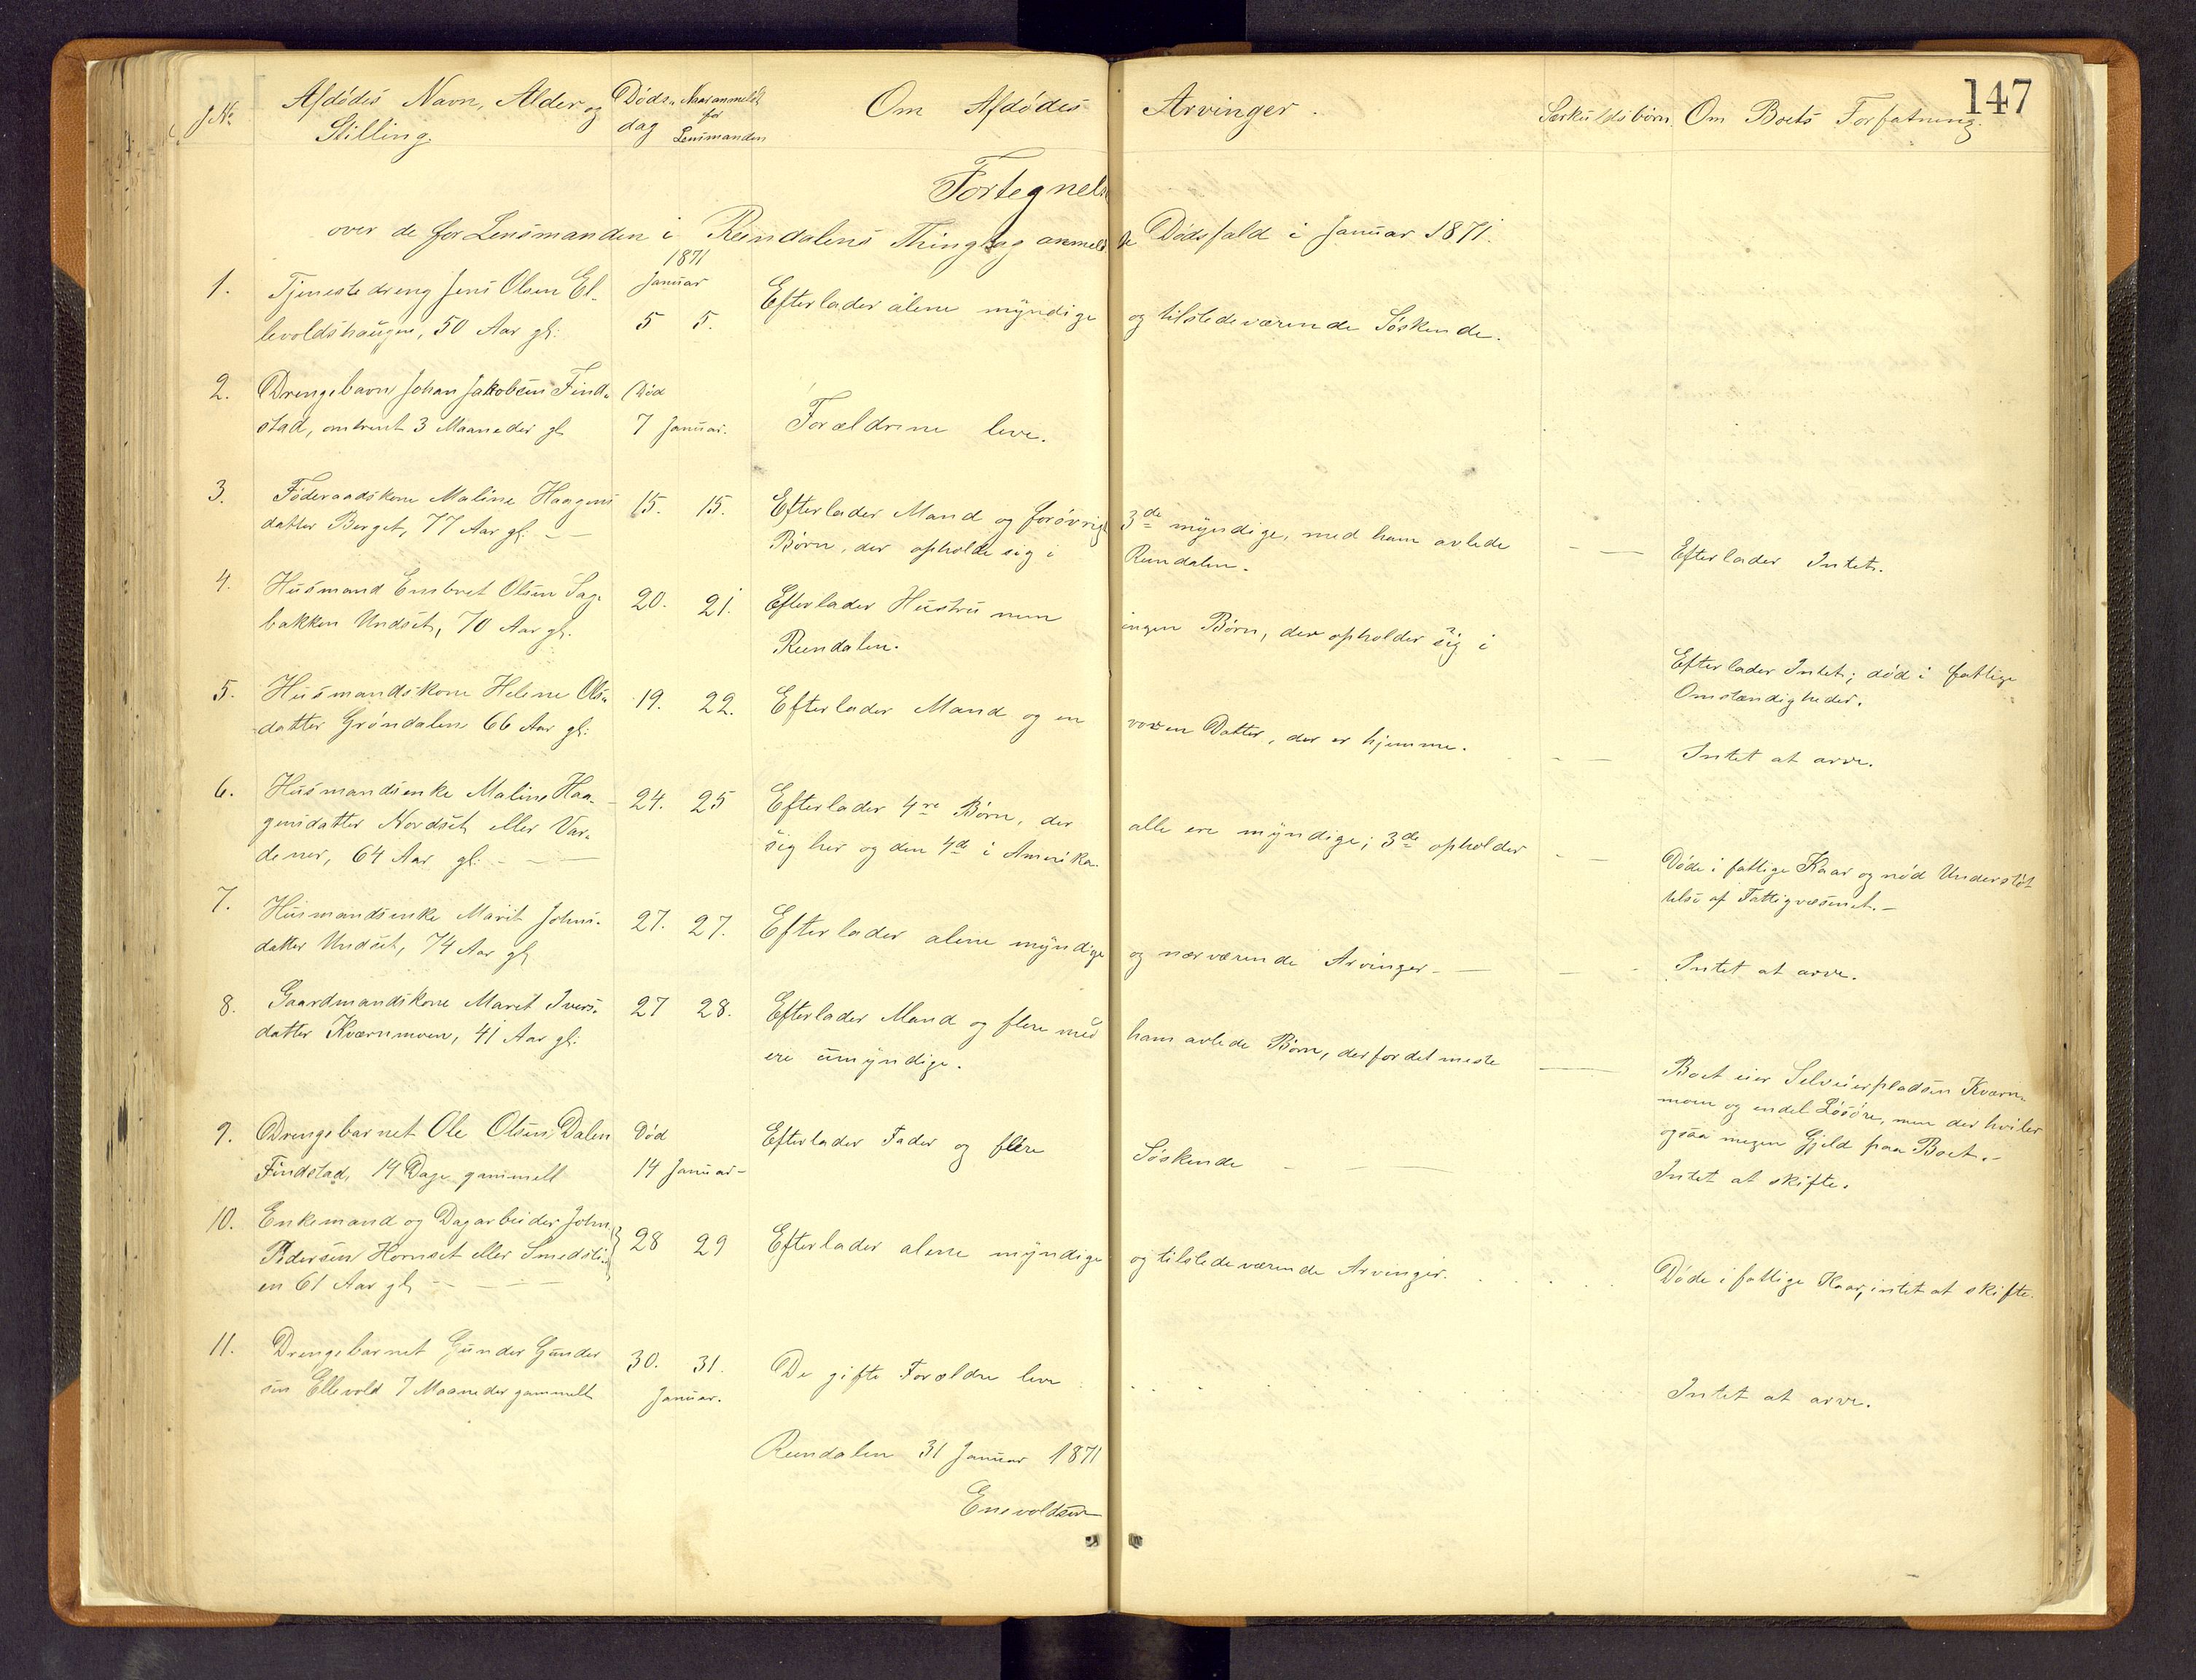 147
No. Afdødes Navn, Alder og Stilling. Dødsdag Naar anmeldt for Lensmanden Om Afdødes Arvinger. Særkuldsbørn. Om Boets Forfatning.
Fortegnelse
over de for Lensmanden i Rendalens Thinglag anmeldte Dødsfald i Januar 1871.
1871
Januar
1. Tjenestedreng Jens Olsen El- 5 5. Efterlader alene myndige og tilstedeværende Søskende.
levoldshaugen, 50 Aar gl:
2. Drengebarn Johan Jakobsen Find- Død
stad, omtrent 3 Maaneder gl. 7 Januar. Forældrene leve.
3. Føderaadskone Maline Haagens 15. 15. Efterlader Mand og forøvrigt 3de myndige, med ham avlede
datter Berget, 77 Aar gl. Børn, der opholde sig i Rendalen. Efterlader Intet.
4. Husmand Embret Olsen Sag- 20. 21. Efterlader Hustru men ingen Børn, der opholder sig i
bakken Undset, 70 Aar gl. Rendalen. Efterlader Intet; død i fattige
Omstændigheder.
5. Husmandskone Helene Ols- 19. 22. Efterlader Mand og en voxen Datter, der er hjemme. Intet at arve.
datter Grøndalen 66 Aar gl:
6. Husmandsenke Maline Haa- 24. 25 Efterlader 4re Børn, der alle ere myndige; 3de opholder
gensdatter Nordset eller Var- sig her og den 4de i Amerika. Døde i fattige Kaar og nød Understøt
dener, 64 Aar gl: telse af Fattigvæsenet.
7. Husmandsenke Marit Johns- 27. 27. Efterlader alene myndige og nærværende Arvinger Intet at arve.
datter Undset, 74 Aar gl.
8. Gaardmandskone Marit Ivers- 27 28. Efterlader Mand og flere med ham avlede Børn, der for det meste
datter Kværnmoen, 41 Aar gl: ere umyndige. Boet eier Selveierpladsen Kværn-
moen og endel Løsøre, men der hviler
ogsaa megen Gjeld paa Boet.
9. Drengebarnet Ole Olsen Dalen Død Efterlader Fader og flere Søskende Intet at skifte.
Findstad, 14 Dage gammelt 14 Januar
10. Enkemand og Dagarbeider John 28 29 Efterlader alene myndige og tilstedeværende Arvinger. Døde i fattige Kaar, intet at skifte.
Pedersen Hornset eller Smedsti-
en 61 Aar gl.
11. Drengebarnet Gunder Gunder 30. 31. De gifte Forældre leve Intet at arve.
sen Ellevold 7 Maaneder gammelt Januar.
Rendalen 31 Januar 1871
Enevoldsen